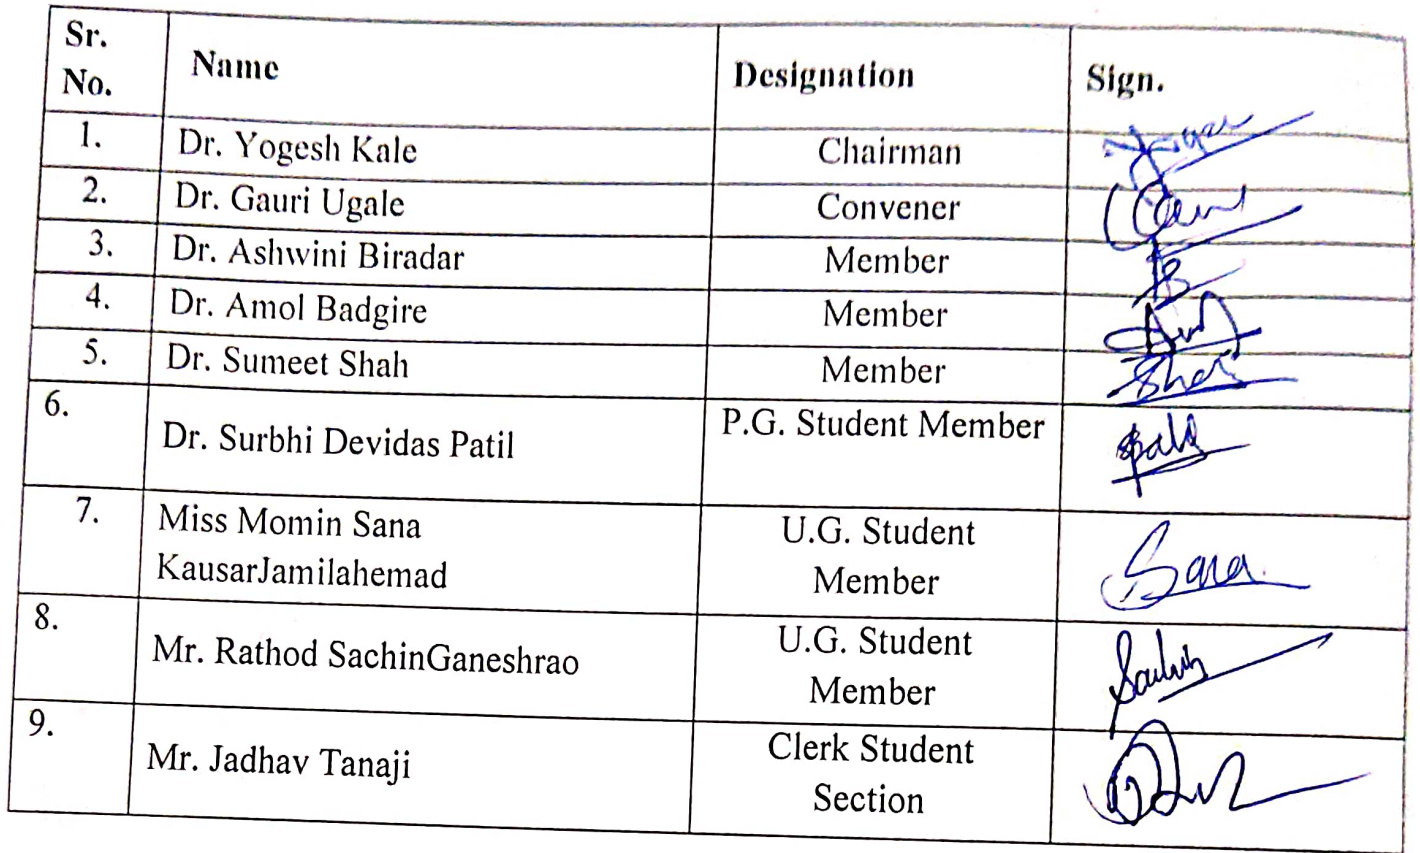 Sr. No. Name Designation Sign.
1. Dr. Yogesh Kale Chairman
2. Dr. Gauri Ugale Convener
3. Dr. Ashwini Biradar Member
4. Dr. Amol Badgire Member
5. Dr. Sumeet Shah Member
6. Dr. Surbhi Devidas Patil P.G. Student Member
7. Miss Momin Sana
KausarJamilahemad
U.G. Student
Member
Sana
8. Mr. Rathod SachinGaneshrao
U.G. Student
Member
9. Mr. Jadhav Tanaji
Clerk Student
Section